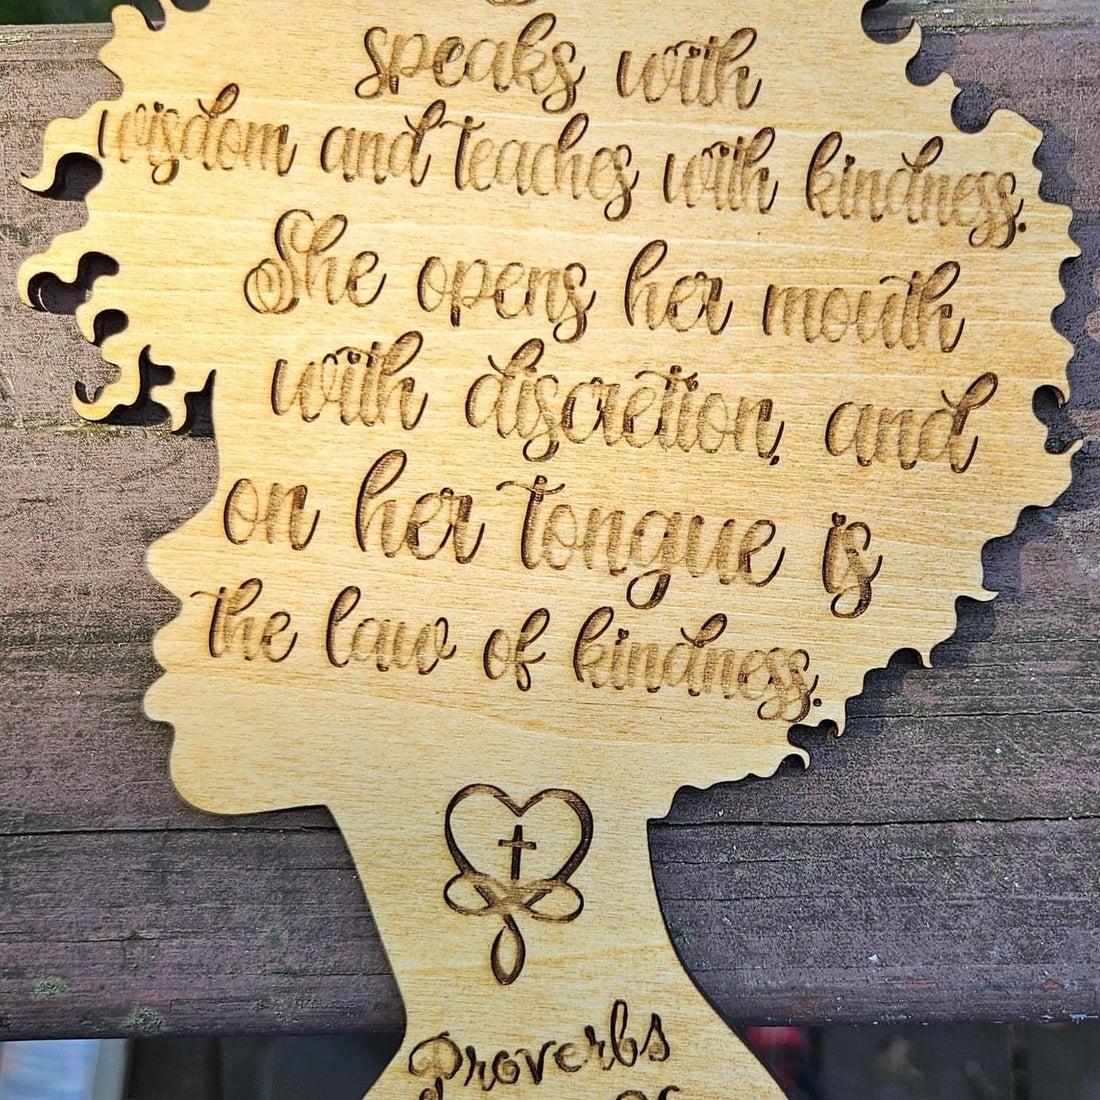 speaks with
wisdom and teaches with kindness.
She opens her mouth
with discretion, and
on her tongue is
the law of kindness.
Proverbs